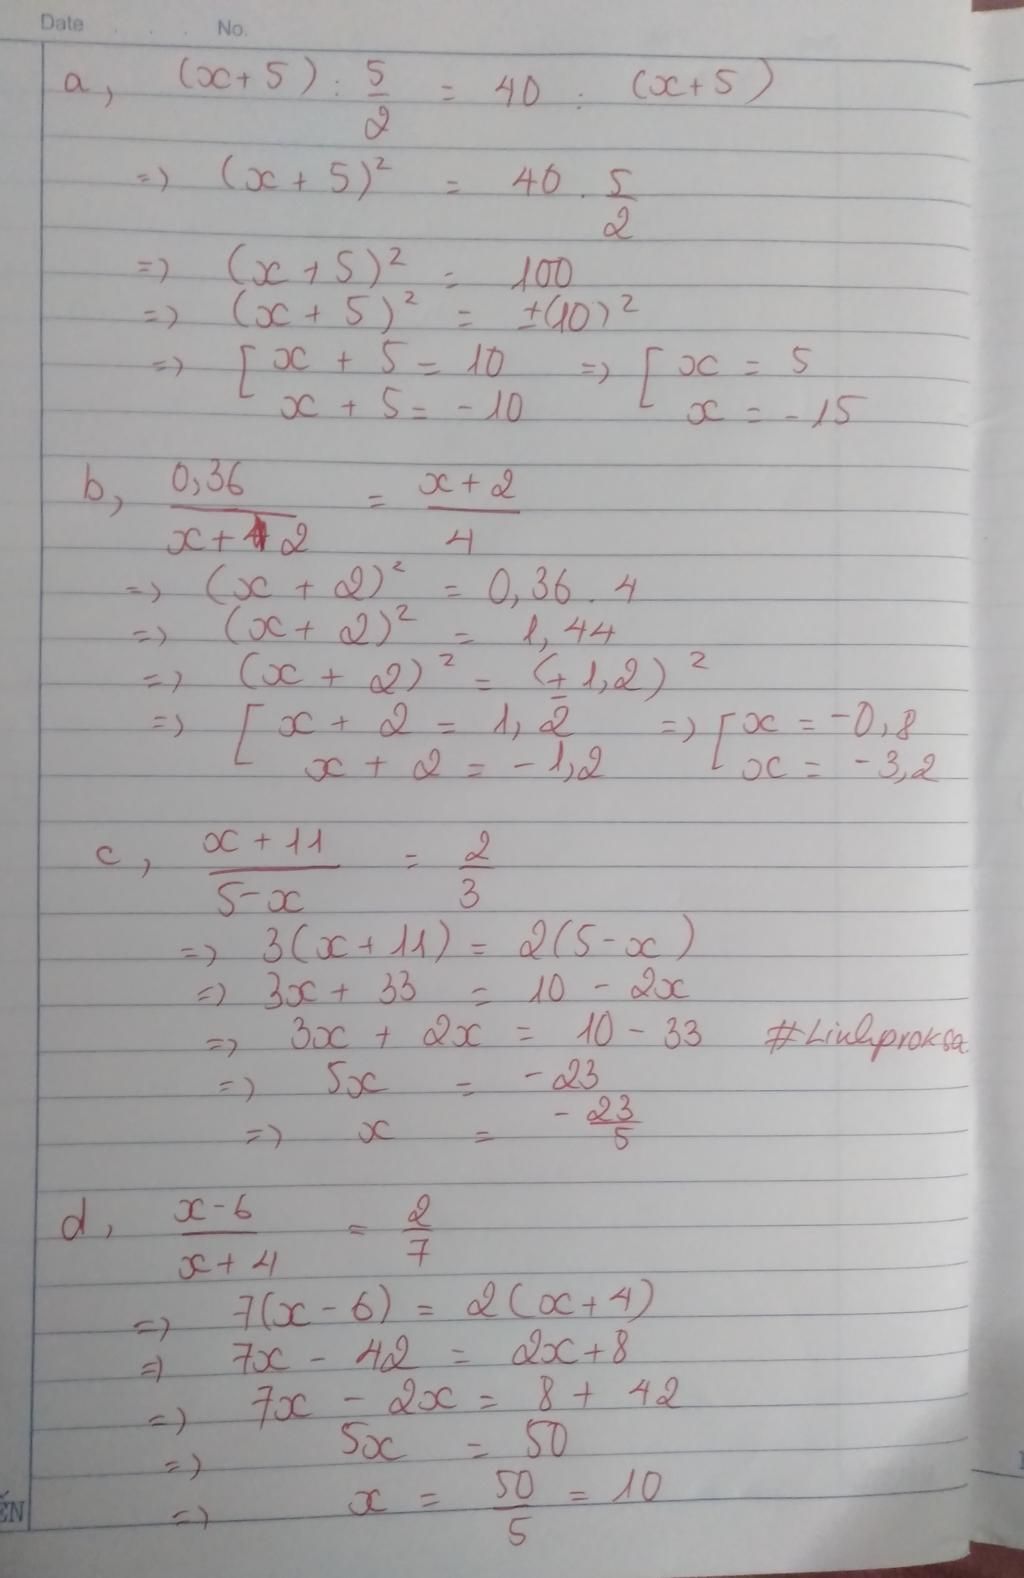 Date . . . No.
a, (x+5) : 5/2 = 40 : (x+5)
=> (x+5)² = 40 . 5/2
=> (x+5)² = 100
=> (x+5)² = ±(10)²
=> [ x + 5 = 10 => [ x = 5
x + 5 = -10 x = -15
b, 0,36/(x+2) = (x+2)/4
=> (x+2)² = 0,36 . 4
=> (x+2)² = 1,44
=> (x+2)² = (±1,2)²
=> [ x + 2 = 1,2 => [ x = -0,8
x + 2 = -1,2 x = -3,2
c, (x+11)/(5-x) = 2/3
=> 3(x+11) = 2(5-x)
=> 3x + 33 = 10 - 2x
=> 3x + 2x = 10 - 33 #Linhproksa
=> 5x = -23
=> x = -23/5
d, (x-6)/(x+4) = 2/7
=> 7(x-6) = 2(x+4)
=> 7x - 42 = 2x+8
=> 7x - 2x = 8 + 42
=> 5x = 50
=> x = 50/5 = 10